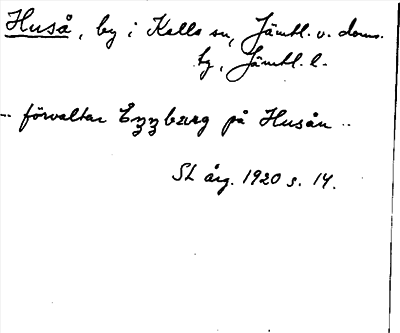 Huså, by i Kalls sn, Jämtl. v. doms.
by, Jämtl. l.
.. förvaltar Ezzberg på Husån ..
SL årg. 1920 s. 14.